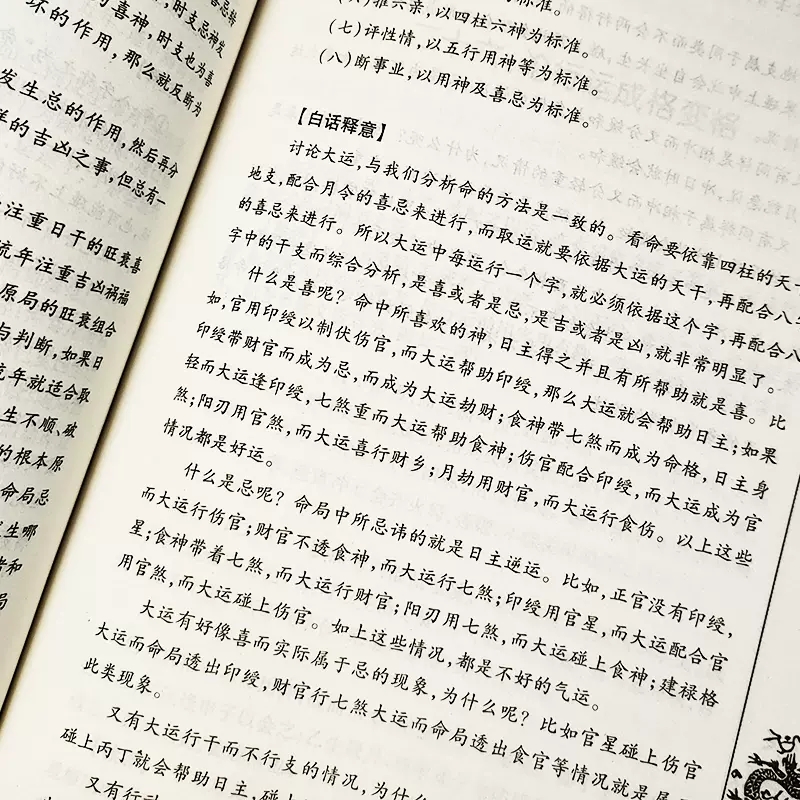 喜忌特
，时支忌神发
的喜神，时支也为喜
坏的作用，那么就反断为
发生总的作用，然后再分
样的吉凶之事，但总有一
注重日干的旺衰喜
流年注重吉凶祸福
原局的旺衰组合
与判断，如果日
流年就适合取
生不顺、破
的根本原
命局忌
发生哪
者和
局
推六亲，以四柱六神为标准。
(七)评性情，以五行用神等为标准。
(八)断事业，以用神及喜忌为标准。
【白话释意】
讨论大运，与我们分析命的方法是一致的。看命要依靠四柱的天干
地支，配合月令的喜忌来进行，而取运就要依据大运的天干，再配合八
的喜忌来进行。所以大运中每运行一个字，就必须依据这个字，再配合八
字中的干支而综合分析，是喜或者是忌，是吉或者是凶，就非常明显了。
什么是喜呢？命中所喜欢的神，日主得之并且有所帮助就是喜。比
如，官用印绶以制伏伤官，而大运帮助印绶，那么大运就会帮助日主；如果
印绶带财官而成为忌，而成为大运劫财；食神带七煞而成为命格，日主身
轻而大运逢印绶，七煞重而大运帮助食神；伤官配合印绶，而大运成为官
煞；阳刃用官煞，而大运喜行财乡；月劫用财官，而大运行食伤。以上这些
情况都是好运。
什么是忌呢？命局中所忌讳的就是日主逆运。比如，正官没有印绶，
而大运行伤官；财官不透食神，而大运行七煞；印绶用官星，而大运配合官
星；食神带着七煞，而大运行财官；阳刃用七煞，而大运碰上食神；建禄格
用官煞，而大运碰上伤官。如上这些情况，都是不好的气运。
大运有好像喜而实际属于忌的现象，为什么呢？比如官星碰上伤官
大运而命局透出印绶，财官行七煞大运而命局透出食官等情况就是属
此类现象。
又有大运行干而不行支的情况，为什
碰上丙丁就会帮助日主，碰上
又有行